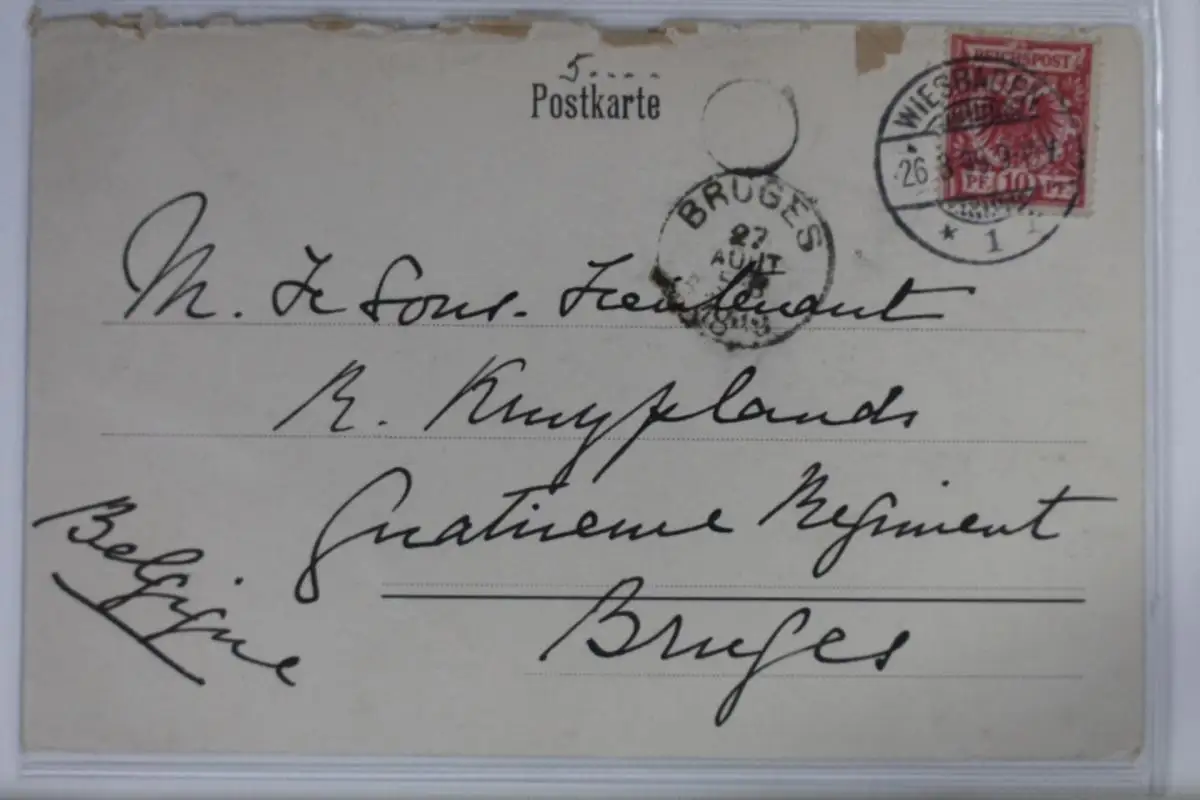 5....
Postkarte
REICHSPOST
PF 10 PF
WIESBADEN
26.8.
* 1
BRUGES
27
AOUT
M. Le Sous-Lieutenant
R. Kruyplands
Quatrieme Regiment
Bruges
Belgique